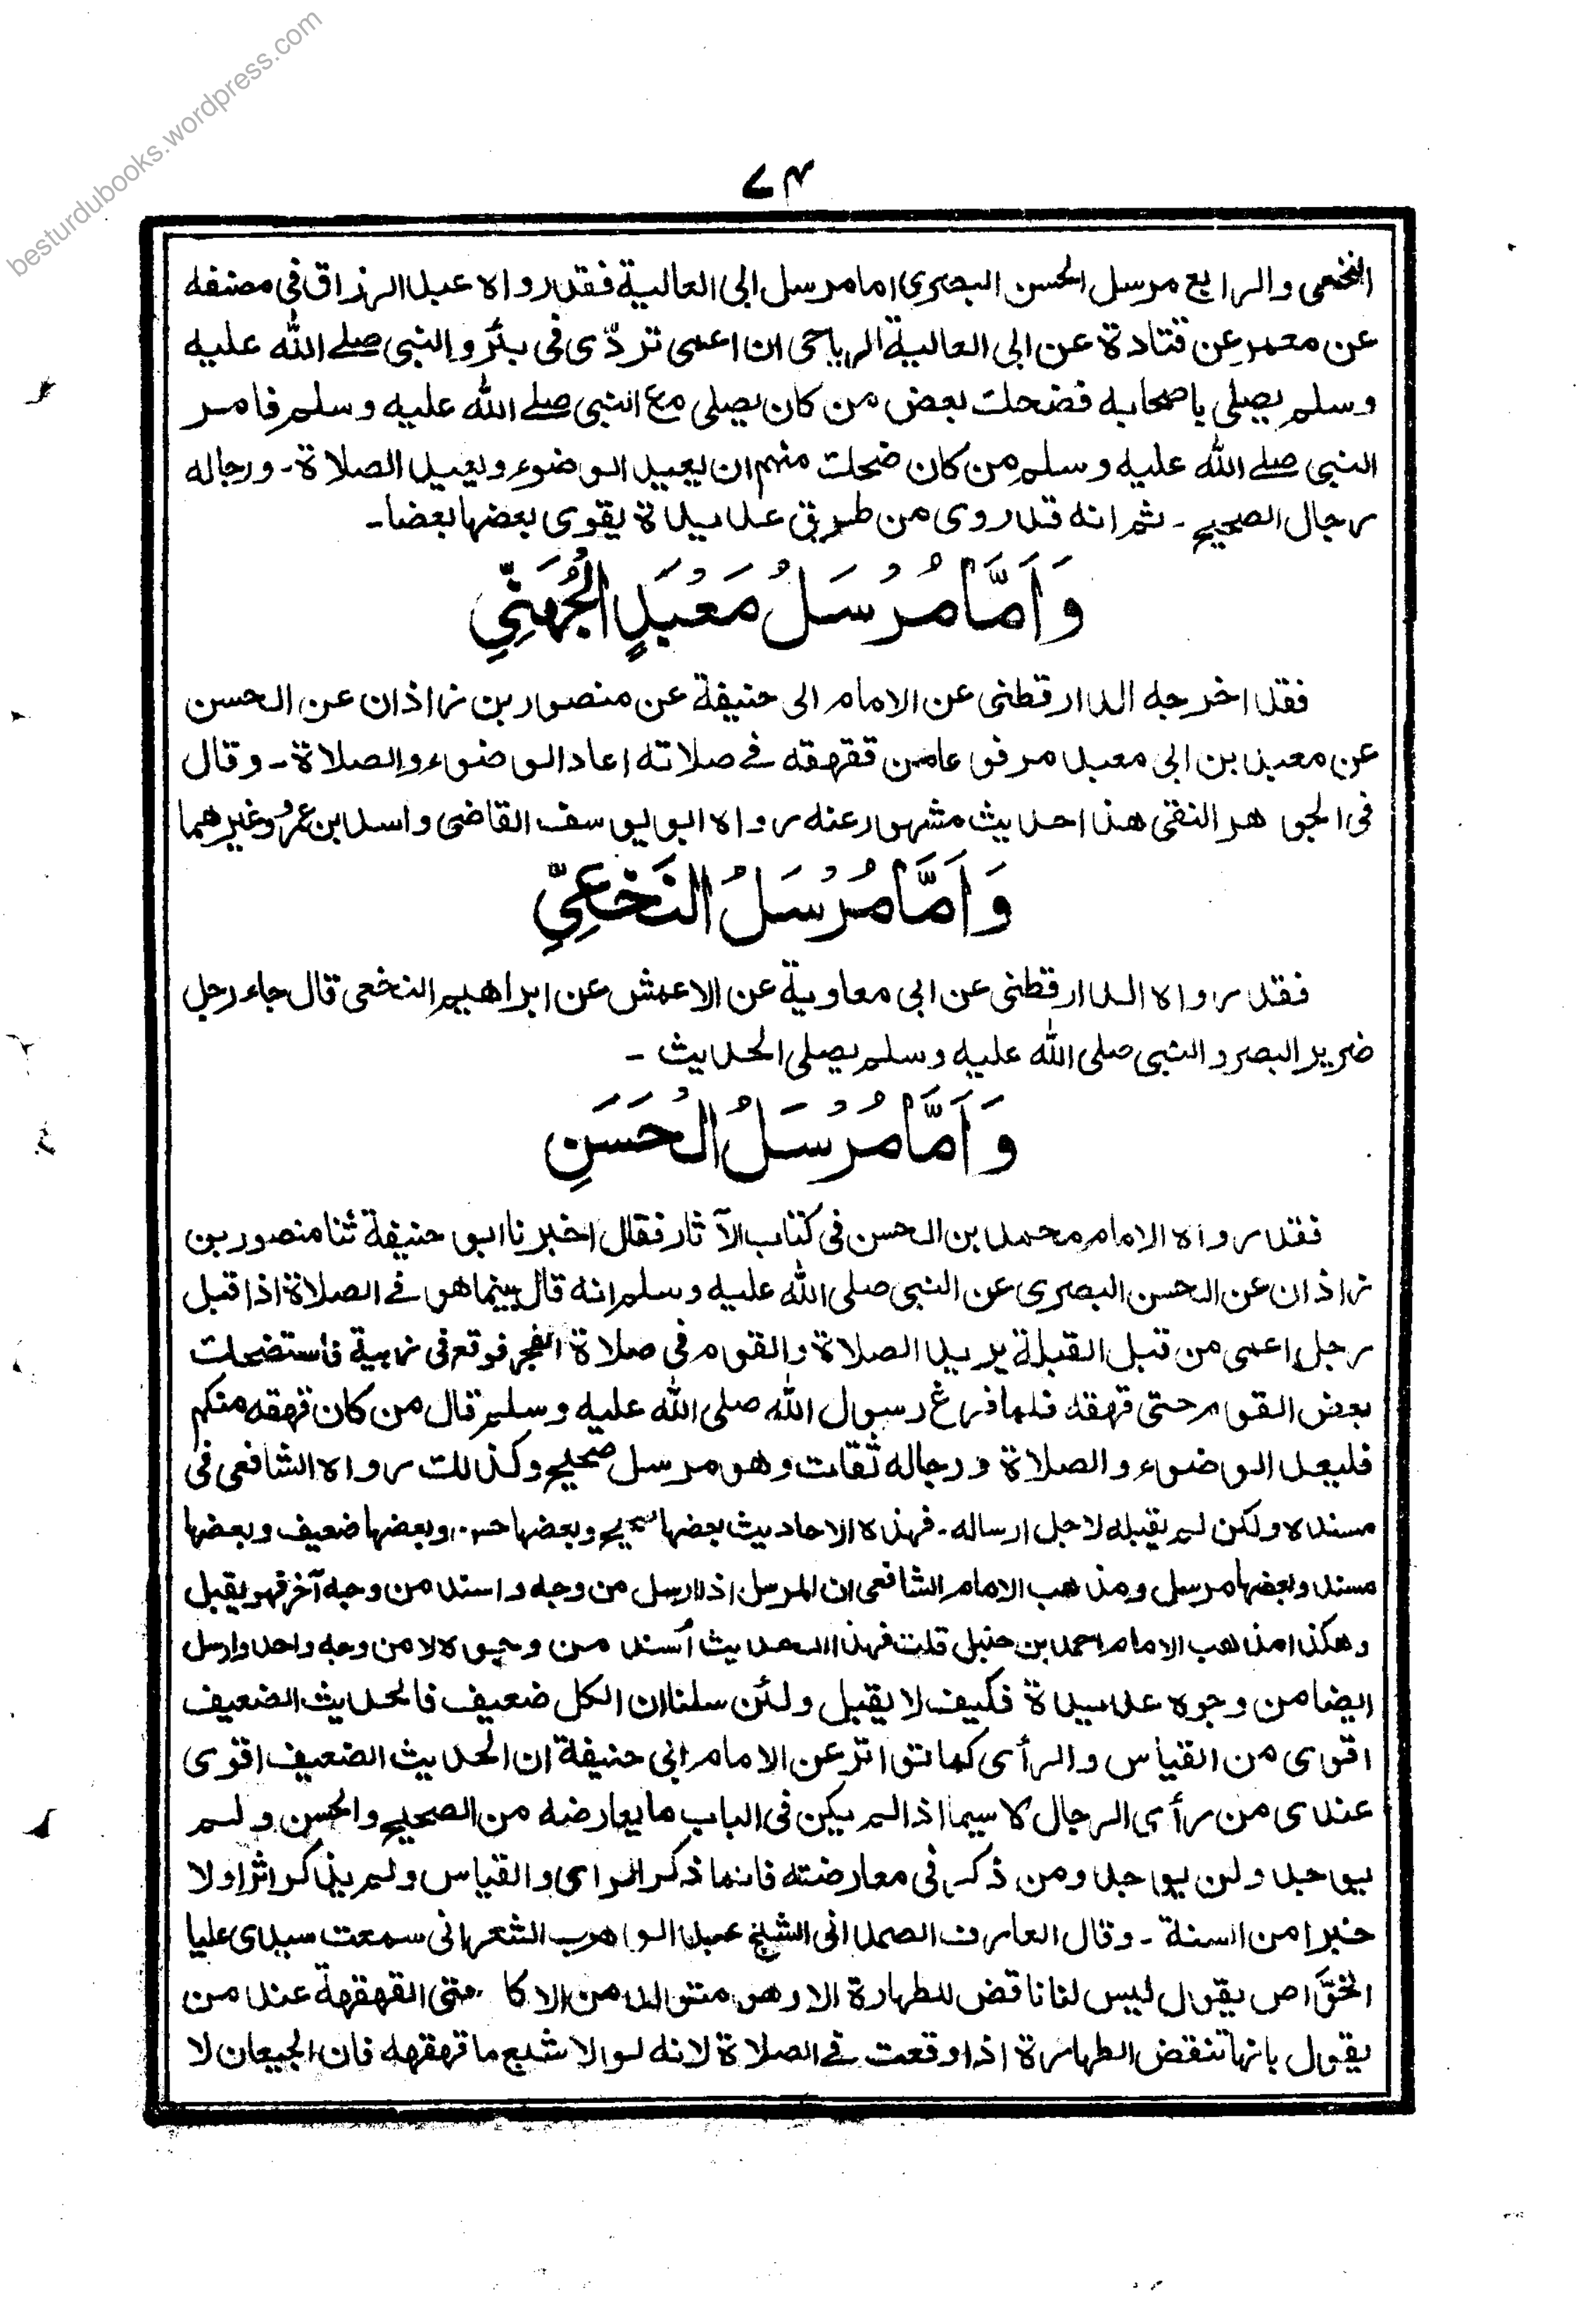 besturdubooks.wordpress.com
٧٤
النخعي والرابع مرسل الحسن البصرى اما مرسل ابى العالية فقد رواه عبد الرزاق فى مصنفه
عن معمر عن قتادة عن ابى العالية الرياحى ان اعمى تردّى فى بئر والنبى صلے الله عليه
وسلم يصلى باصحابه فضحك بعض من كان يصلى مع النبى صلے الله عليه وسلم فامر
النبى صلے الله عليه وسلم من كان ضحك منهم ان يعيد الوضوء ويعيد الصلاة - ورجاله
رجال الصحيح - ثم انه قد روى من طرق عديدة يقوى بعضها بعضا -
وَاَمَّا مُرْسَلُ مَعْبَدٍ الْجُهَنِّيِ
فقد اخرجه الدارقطنى عن الامام ابى حنيفة عن منصور بن زاذان عن الحسن
عن معبد بن ابى معبد مرفوعا من قهقهه فے صلاته اعاد الوضوء والصلاة - وقال
فى الجوهر النقى هذا حديث مشهور عنه رواه ابو يوسف القاضى واسد بن عمرو وغيرهما
وَاَمَّا مُرْسَلُ النَّخَعِيِّ
فقد رواه الدارقطنى عن ابى معاوية عن الاعمش عن ابراهيم النخعى قال جاء رجل
ضرير البصر والنبى صلى الله عليه وسلم يصلى الحديث -
وَاَمَّا مُرْسَلُ الْحَسَنِ
فقد رواه الامام محمد بن الحسن فى كتاب الآثار فقال اخبرنا ابو حنيفة ثنا منصور بن
زاذان عن الحسن البصرى عن النبى صلى الله عليه وسلم انه قال بينما هو فے الصلاة اذا قبل
رجل اعمى من قبل القبلة يريد الصلاة والقوم فى صلاة الفجر فوقع فى زبية فاستضحك
بعض القوم حتى قهقه فلما فرغ رسول الله صلى الله عليه وسلم قال من كان قهقه منكم
فليعد الوضوء والصلاة ورجاله ثقات وهو مرسل صحيح وكذلك رواه الشافعى فى
مسنده ولكن لم يقبله لاجل ارساله - فهذه الاحاديث بعضها صحيح وبعضها حسن وبعضها ضعيف وبعضها
مسند وبعضها مرسل ومذهب الامام الشافعى ان المرسل اذا ارسل من وجه واسند من وجه آخر فهو يقبل
وهكذا مذهب الامام احمد بن حنبل قلت فهذا الحديث أسند من وجوه لا من وجه واحد وارسل
ايضا من وجوه عديدة فكيف لا يقبل ولئن سلنا ان الكل ضعيف فالحديث الضعيف
اقوى من القياس والرأى كما تواتر عن الامام ابى حنيفة ان الحديث الضعيف اقوى
عندى من رأى الرجال لا سيما اذا لم يكن فى الباب ما يعارضه من الصحيح والحسن ولم
يوجد ولن يوجد ومن ذكر فى معارضته فانما ذكر الراى والقياس ولم يذكر اثرا ولا
خبرا من السنة - وقال العارف الصمدانى الشيخ عبد الواهب الشعرانى سمعت سيدى عليا
الخوَّاص يقول ليس لنا ناقض للطهارة الا وهو متولد من الاكل حتى القهقهة عند من
يقول بانها تنقض الطهارة اذا وقعت فے الصلاة لانه لولا شبع ما قهقهه فان الجيعان لا